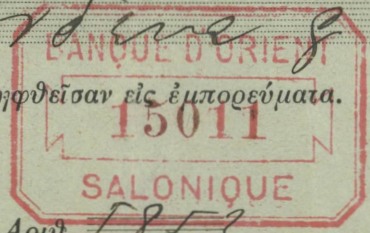 BANQUE D'ORIENT
ηφθεῖσαν εἰς ἐμπορεύματα.
15011
SALONIQUE
Ἀριθ.